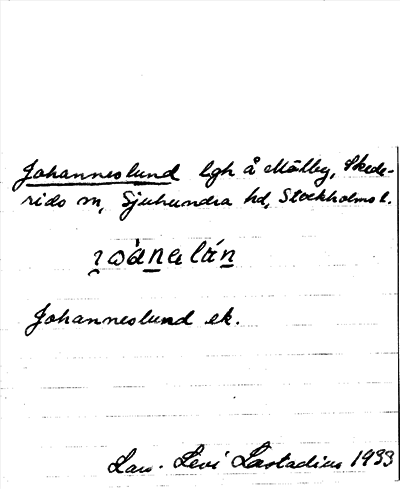 Johanneslund lgh å Målby, Skede-
rids sn, Sjuhundra hd, Stockholms l.
Johanneslund ek.
Lars Levi Læstadius 1933